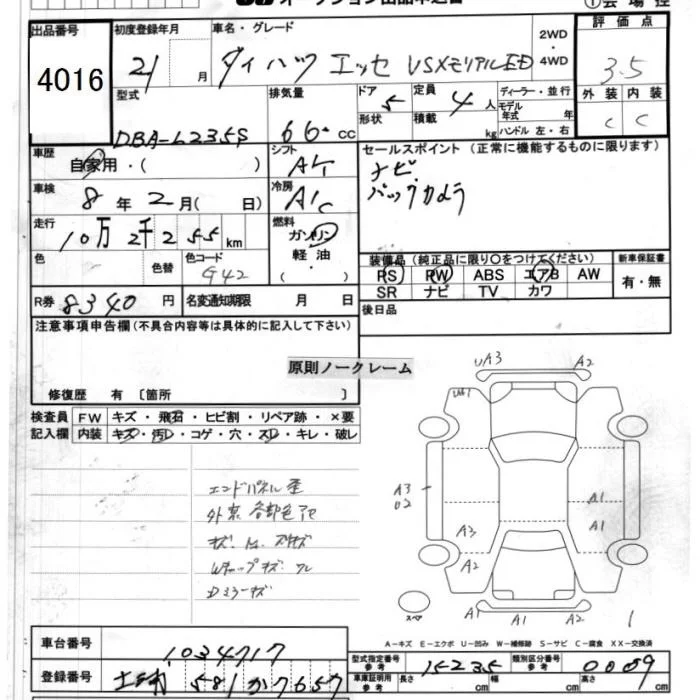 オークション出品申込書 ①会場控
出品番号 初度登録年月 車名・グレード 2WD・4WD 評価点
4016 21 月 ダイハツ エッセ VSメモリアルED 3.5
型式 排気量 ドア 5 定員 4人 ディーラー・並行 外装 内装
DBA-L235S 660 cc 形状 積載 kg モデル年式 年 ハンドル 左・右 C C
車歴 シフト セールスポイント (正常に機能するものに限ります)
自家用・( ) AT ナビ
車検 冷房 バックカメラ
8年 2月( 日) A/C
走行 燃料
10万2千255km ガソリン
軽油・ ( )
色 色替 色コード 装備品 (純正品に限り○をつけてください) 新車保証書
G42 PS PW ABS エアB AW 有・無
SR ナビ TV カワ
R券 8340 円 名変通知期限 月 日 後日品
注意事項申告欄(不具合内容等は具体的に記入して下さい)
原則ノークレーム
修復歴 有 〔箇所 〕
検査員 FW キズ・飛石・ヒビ割・リペア跡・×要
記入欄 内装 キズ・汚レ・コゲ・穴・スレ・キレ・破レ
UA3 A2
エンドパネル歪
外装 各部色アセ
A3 A1
U2 A1
A3
A2
Dミラーキズ
A1 A1 A2
スペア
A-キズ E-エクボ U-凹み W-補修跡 S-サビ C-腐食 XX-交換済
車台番号 1034717 型式指定番号 参考 15235 類別区分番号 参考 0009
登録番号 581か7657 車庫証明用 参考 長さ cm 幅 cm 高さ cm